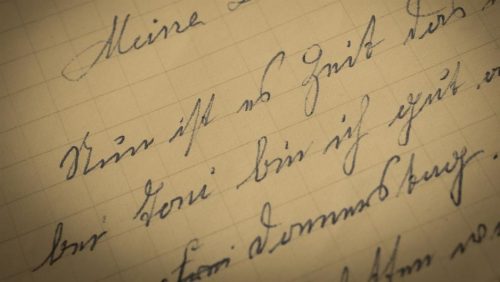 Meine
Nun ist es Zeit das
bei Toni bin ich gut
Donnerstag.